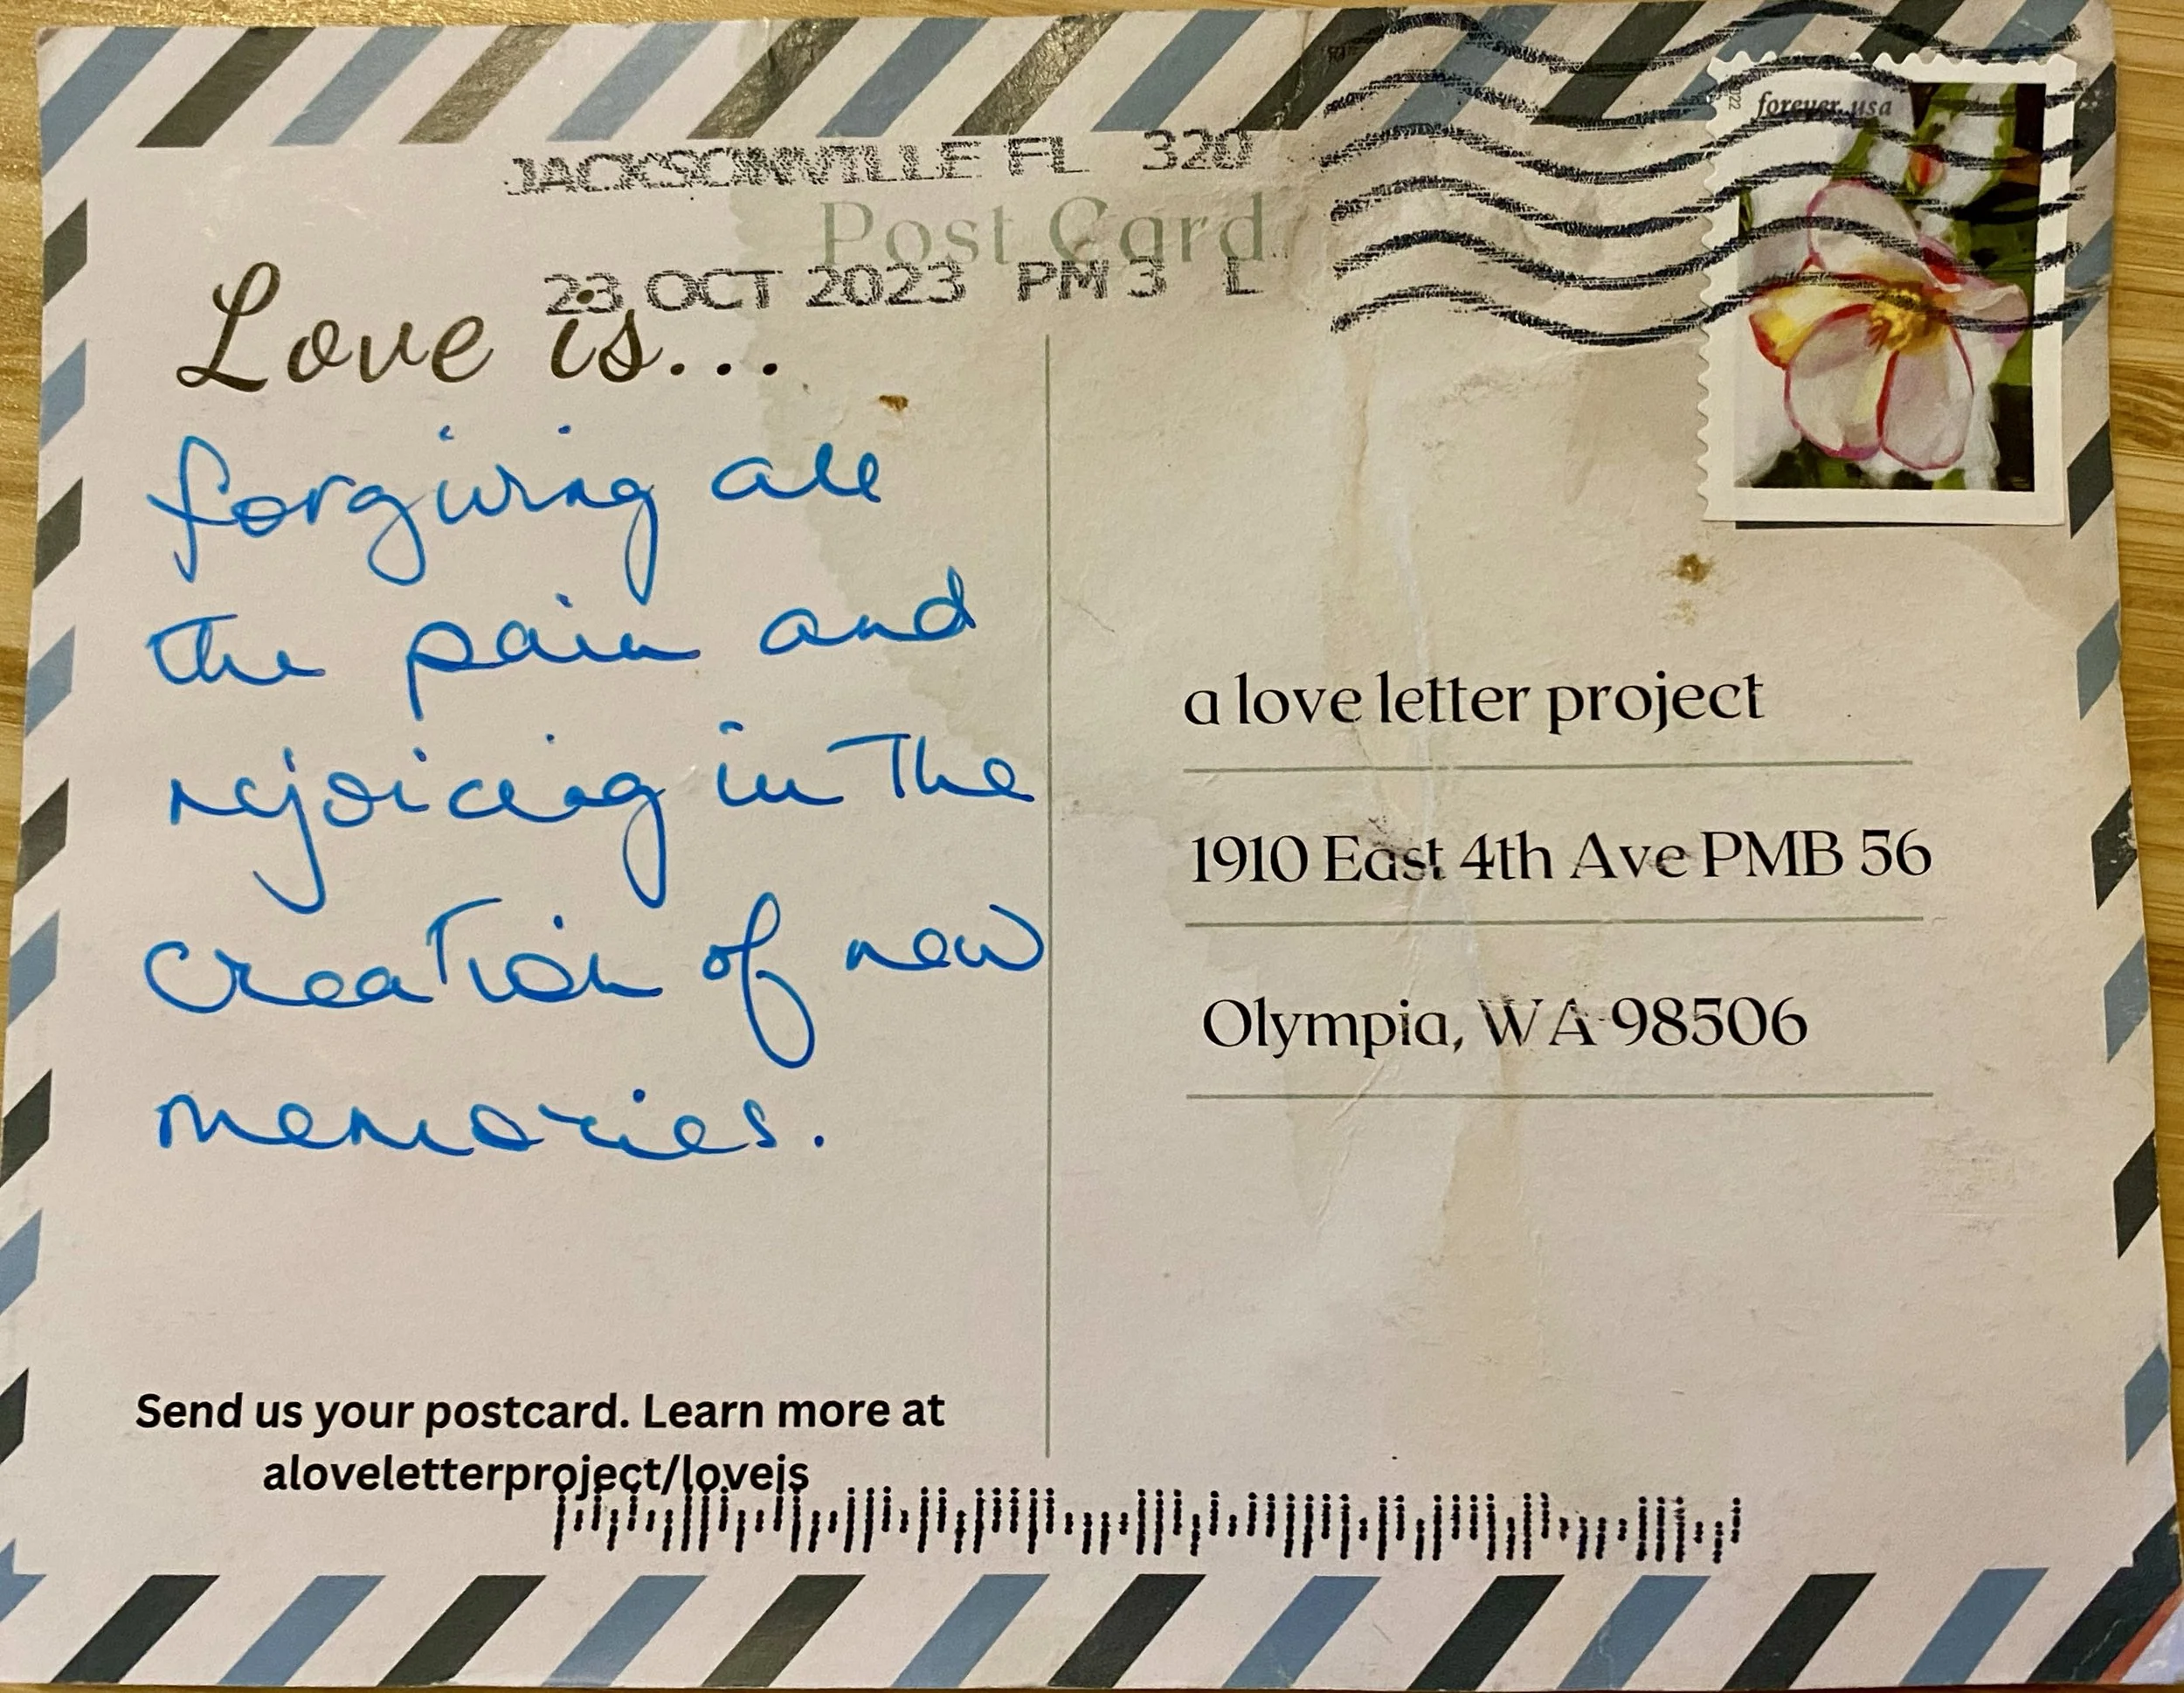 JACKSONVILLE FL 320
forever usa
2022
Post Card
23 OCT 2023 PM 3 L
Love is...
forgiving all
the pain and
rejoicing in the
creation of new
memories.
a love letter project
1910 East 4th Ave PMB 56
Olympia, WA 98506
Send us your postcard. Learn more at
aloveletterproject/loveis